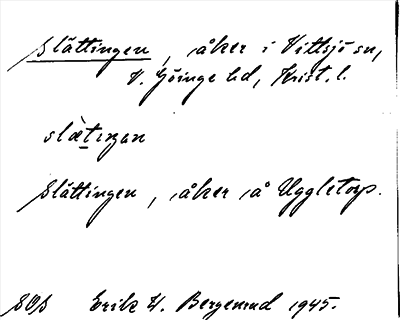 Slättingen, åker i Vittsjö sn,
V. Göinge hd, Krist. l.
slæ̀tıŋan
Slättingen, åker å Uggletorp.
SOS Erik W. Bergenrud 1945.